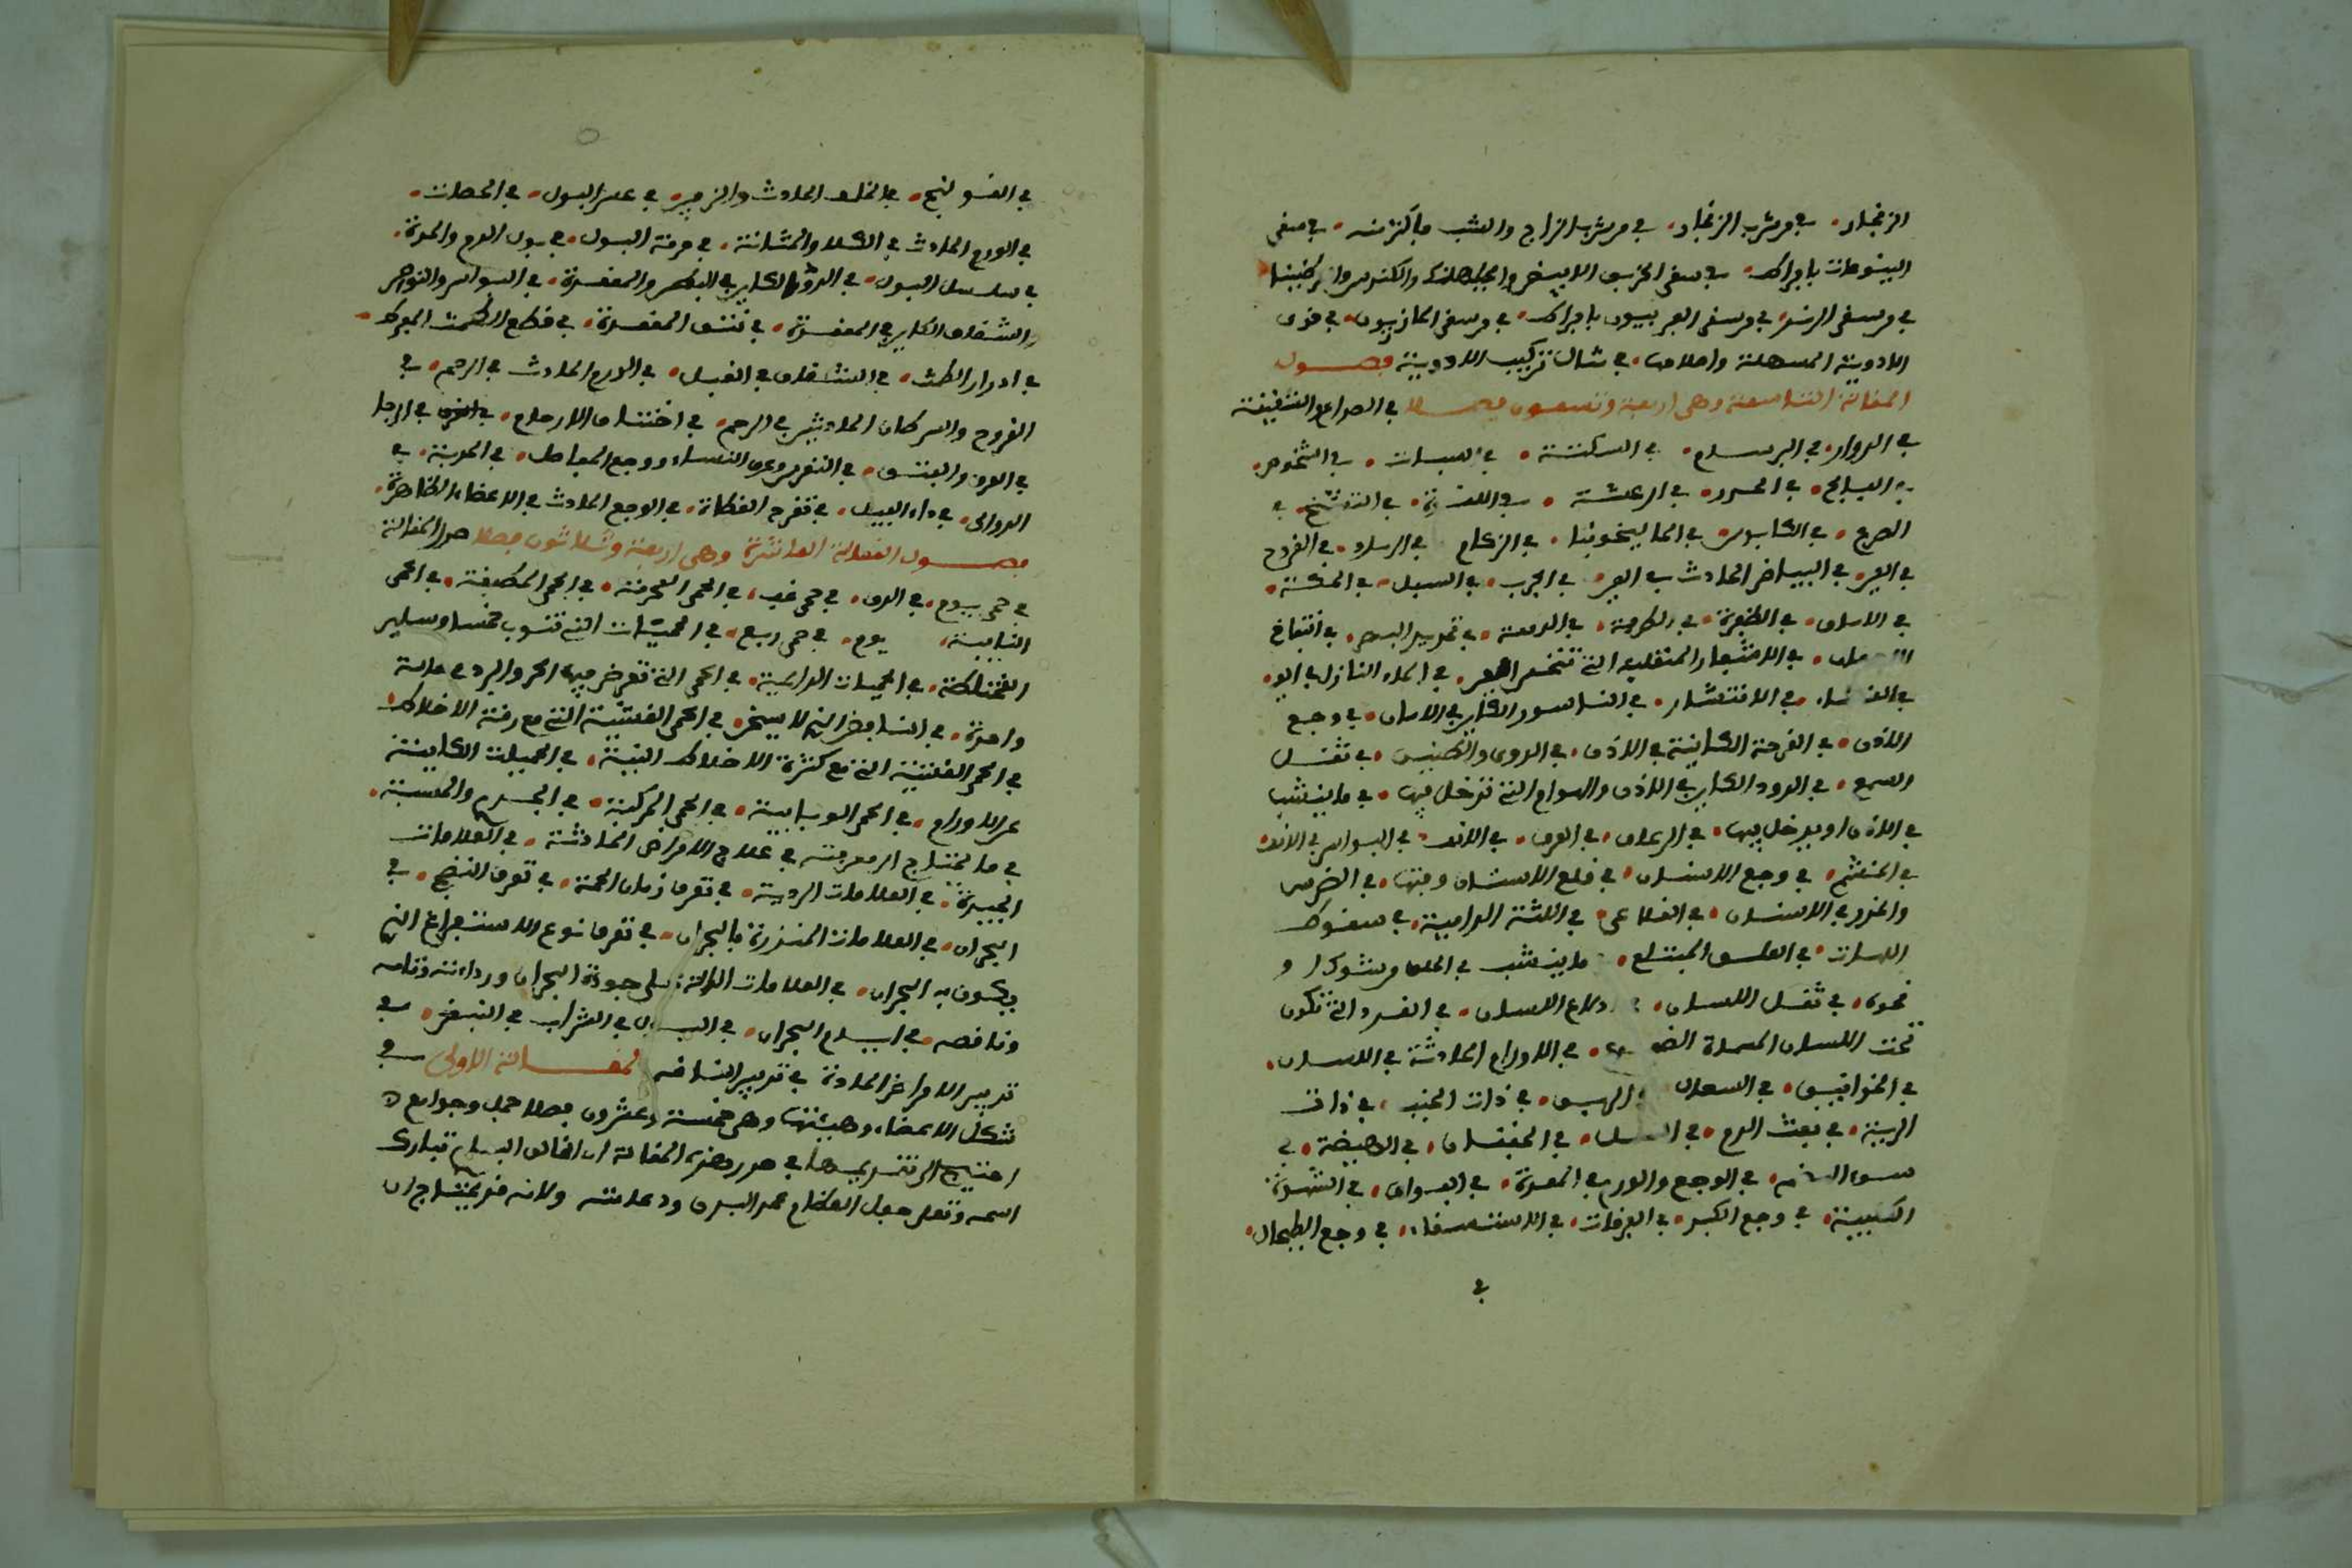 الزنجار، في من شرب الزنجار، في من شرب الزاج والشب بأكثر منه، في من سقي
اليتوعات بإفراط، في من سقي الخربق الأبيض والجبلهنك والكندس والتركنيثا
في من سقي الدند، في من سقي الفربيون بإفراط، في من سقي المازريون، في قوى
الأدوية المسهلة وإصلاحها، في مثال تركيب الأدوية فصول
المقالة التاسعة وهي أربعة وتسعون فصلا في الصداع والشقيقة
في الدوار، في البرسام، في السكتة، في السبات، في الشخوص،
في الفالج، في الخدر، في الرعشة، في اللقوة، في التشنج، في
الصرع، في الكابوس، في الماليخوليا، في الزكام، في الرمد، في القروح
في العين، في البياض الحادث في العين، في الجرب، في السبل، في الحكة،
في الأماق، في الظفرة، في الطرفة، في الدمعة، في تحديد البصر، في انتفاخ
الأجفان، في الأشفار المنقلبة التي تنخس العين، في الماء النازل في العين،
في العشاء، في الانتشار، في الناسور الكاين في الأماق، في وجع
الأذن، في القرحة الكاينة في الأذن، في الدوي والطنين، في ثقل
السمع، في الدود الكاين في الأذن والهوام التي تدخل فيها، في ما ينشب
في الأذن أو يدخل فيها، في الرعاف، في الأنف، في البواسير في الأنف،
في الخشم، في وجع الأسنان، في قلع الأسنان وفتها، في الضرس
والحفر في الأسنان، في القلاع، في اللثة الدامية، في سقوط
اللهاة، في العلق المبتلع، ما ينشب في الحلق من شوك أو
نحوه، في ثقل اللسان، ادلاع اللسان، في الغدد التي تكون
تحت اللسان المسماة الضفدع، في الأورام الحادثة في اللسان،
في الخوانيق، في السعال، الربو، في ذات الجنب، في ذات
الرية، في نفث الدم، في السل، في الخفقان، في الهيضة، في
سوء الهضم، في الوجع والورم في المعدة، في الفواق، في الشهوة
الكلبية، في وجع الكبد، في اليرقان، في الاستسقاء، في وجع الطحال،
في
في القولنج، في الخلفة الحادث والزحير، في عسر البول، في الحصاة،
في الورم الحادث في الكلا والمثانة، في حرقة البول، في بول الدم والمدة،
في سلس البول، في الدود الكاين في البطن والمقعدة، في البواسير والنواصير
والشقاق الكاين في المقعدة، في نتو المقعدة، في قطع الطمث المفرط،
في إدرار الطمث، في الشقاق في القبل، في الورم الحادث في الرحم، في
القروح والسرطان الحادثين في الرحم، في اختناق الأرحام، في الحبل
في العرق والفتق، في النقرس وعرق النساء ووجع المفاصل، في الحدبة، في
الدوالي، في داء الفيل، في تفرح القطاة، في الوجع الحادث في الأعضاء الظاهرة،
فصول المقالة العاشرة وهي أربعة وثلاثون فصلا صدر المقالة
في حمى يوم، في الدق، في حمى غب، في الحمى المحرقة، في الحمى المطبقة، في الحمى
النايبة، يوم، في حمى ربع، في الحميات التي تنوب خمسا وساير
المختلطة، في الحميات الدايمة، في الحمى التي تعرض فيها الحر والبرد في حالة
واحدة، في النافض الذي لا يسخن، في الحمى الغشيية التي مع رقة الأخلاط،
في الحمى الغشيية التي مع كثرة الأخلاط النية، في الحميات الكاينة
عن الأورام، في الحمى الوبايية، في الحمى المركبة، في الجدري والحصبة،
في ما يحتاج إلى معرفته في علاج الأمراض الحادثة، في العلامات
الجيدة، في العلامات الردية، في تعرف أزمان الحمة، في تعرف النضج، في
البحران، في العلامات المنذرة بالبحران، في تعرف نوع الاستفراغ الذي
يكون به البحران، في العلامات الدالة على جودة البحران ورداءته وتمامه
ونقصه، في أيام البحران، في البول في الشراب في النبض، في
تدبير الأمراض الحادة في تدبير الناقه المقالة الأولى في
شكل الأعضاء وهيئتها وهي خمسة وعشرون فصلا جمل وجوامع
احتيج إلى تقديمها في صدر هذه المقالة إن الخالق الباري تبارك
اسمه وتعلى جعل العظام عمد البدن ودعامته ولأنه قد يحتاج إلى